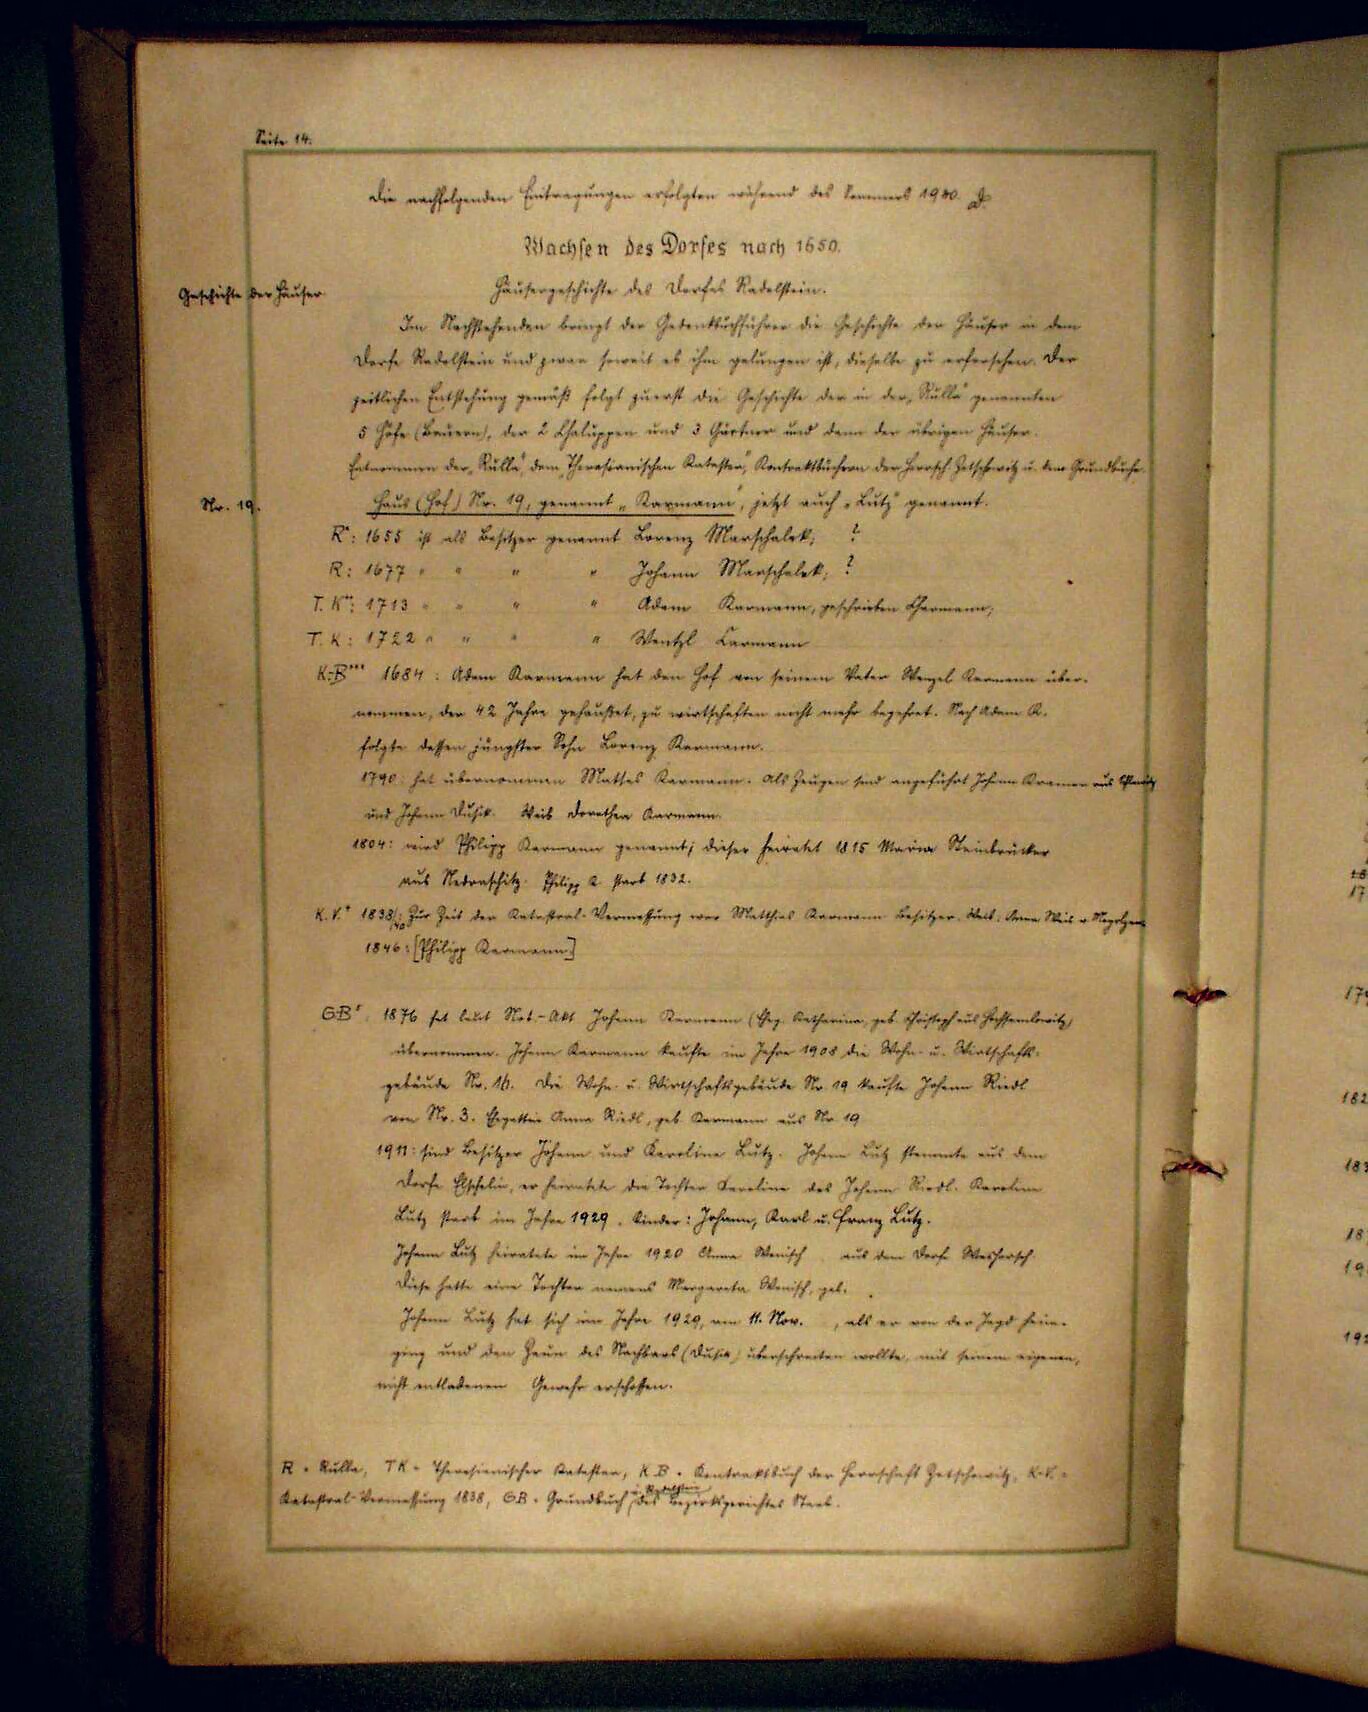 Seite 14.
Die nachfolgenden Eintragungen erfolgten während des Sommers 1940.
Wachsen des Dorfes nach 1650.
Geschichte der Häuser
Häusergeschichte des Dorfes Radelstein.
Im Nachstehenden bringt der Gedenkbuchführer die Geschichte der Häuser in dem
Dorfe Radelstein und zwar soweit es ihm gelungen ist, dieselbe zu erforschen. Der
zeitlichen Entstehung gemäß folgt zuerst die Geschichte der in der „Rulla" genannten
5 Höfe (Bauern), der 2 Chaluppen und 3 Gärtner und dann der übrigen Häuser.
Entnommen der „Rulla", dem „Theresianischen Kataster", Kontraktbüchern der Herrsch. Zetschowitz u. dem Grundbuche.
Nr. 19.
Haus (Hof) Nr. 19, genannt „Karmann", jetzt auch „Lutz" genannt.
R*: 1655 ist als Besitzer genannt Lorenz Marschalek; ?
R: 1677 " " " " Johann Marschalek; ?
T. K**: 1713 " " " " Adam Karmann, geschrieben Charmann;
T. K: 1722 " " " " Wentzl Carmann
K.B*** 1684: Adam Karmann hat den Hof von seinem Vater Wenzel Karmann über-
nommen, der 42 Jahre gehaußet, zu wirtschaften nicht mehr begehret. Nach Adam K.
folgte dessen jüngster Sohn Lorenz Karmann.
1790: hat übernommen Mathes Karmann. Als Zeugen sind angeführt Johann Kramer aus
und Johann Dusik. Weib Dorothea Karmann.
1804: wird Philipp Karmann genannt; dieser heiratet 1815 Maria Steinbrücker
aus Nedraschitz. Philipp K. starb 1832.
K.V.+ 1838/40: Zur Zeit der Katastral-Vermessung war Matthias Karmann Besitzer. Weib: Anna Weis
1846: [Philipp Karmann]
G.B+ 1876 hat laut Not.-Akt Johann Karmann (Eheg. Katharina, geb. Christoph aus Hochsemlowitz)
übernommen. Johann Karmann kaufte im Jahre 1908 die Wohn- u. Wirtschafts-
gebäude Nr. 16. Die Wohn- u. Wirtschaftsgebäude Nr. 19 kaufte Johann Riedl
von Nr. 3. Ehegattin Anna Riedl, geb. Karmann aus Nr. 19
1911: sind Besitzer Johann und Karoline Lutz. Johann Lutz stammte aus dem
Dorfe Elschelin, er heiratete die Tochter Karoline des Johann Riedl. Karoline
Lutz starb im Jahre 1929. Kinder: Johann, Karl u. Franz Lutz.
Johann Lutz heiratete im Jahre 1920 Anna Wenisch aus dem Dorfe
Diese hatte eine Tochter namens Margareta Wenisch, geb.
Johann Lutz hat sich im Jahre 1929, am 11. Nov. , als er von der Jagd heim-
ging und den Zaun des Nachbars (Dusik) überschreiten wollte, mit seinem eigenen,
nicht entladenen Gewehr erschossen.
R = Rulla, TK = Theresianischer Kataster, K.B = Kontraktbuch der Herrschaft Zetschowitz, K.V. =
Katastral-Vermessung 1838, G.B = Grundbuch v. Radelstein des Bezirksgerichtes Staab.